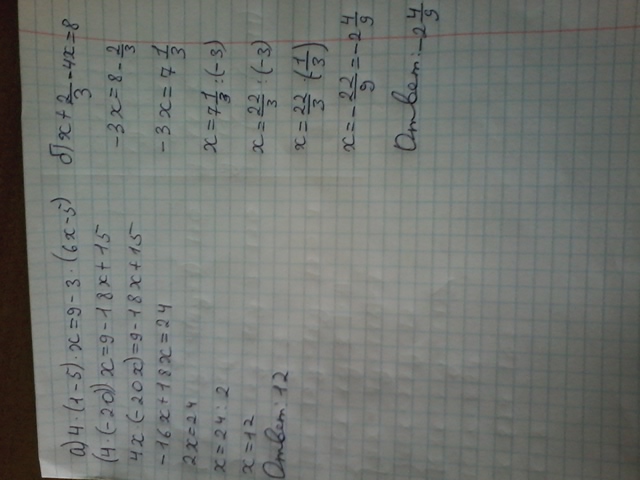 а) 4·(1-5)·x=9-3·(6x-5)
(4·(-20))x=9-18x+15
4x(-20x)=9-18x+15
-16x+18x=24
2x=24
x=24:2
x=12
Ответ: 12
б) x+2/3-4x=8
-3x=8-2/3
-3x=7 1/3
x=7 1/3:(-3)
x=22/3:(-3)
x=22/3·(-1/3)
x=-22/9=-2 4/9
Ответ: -2 4/9